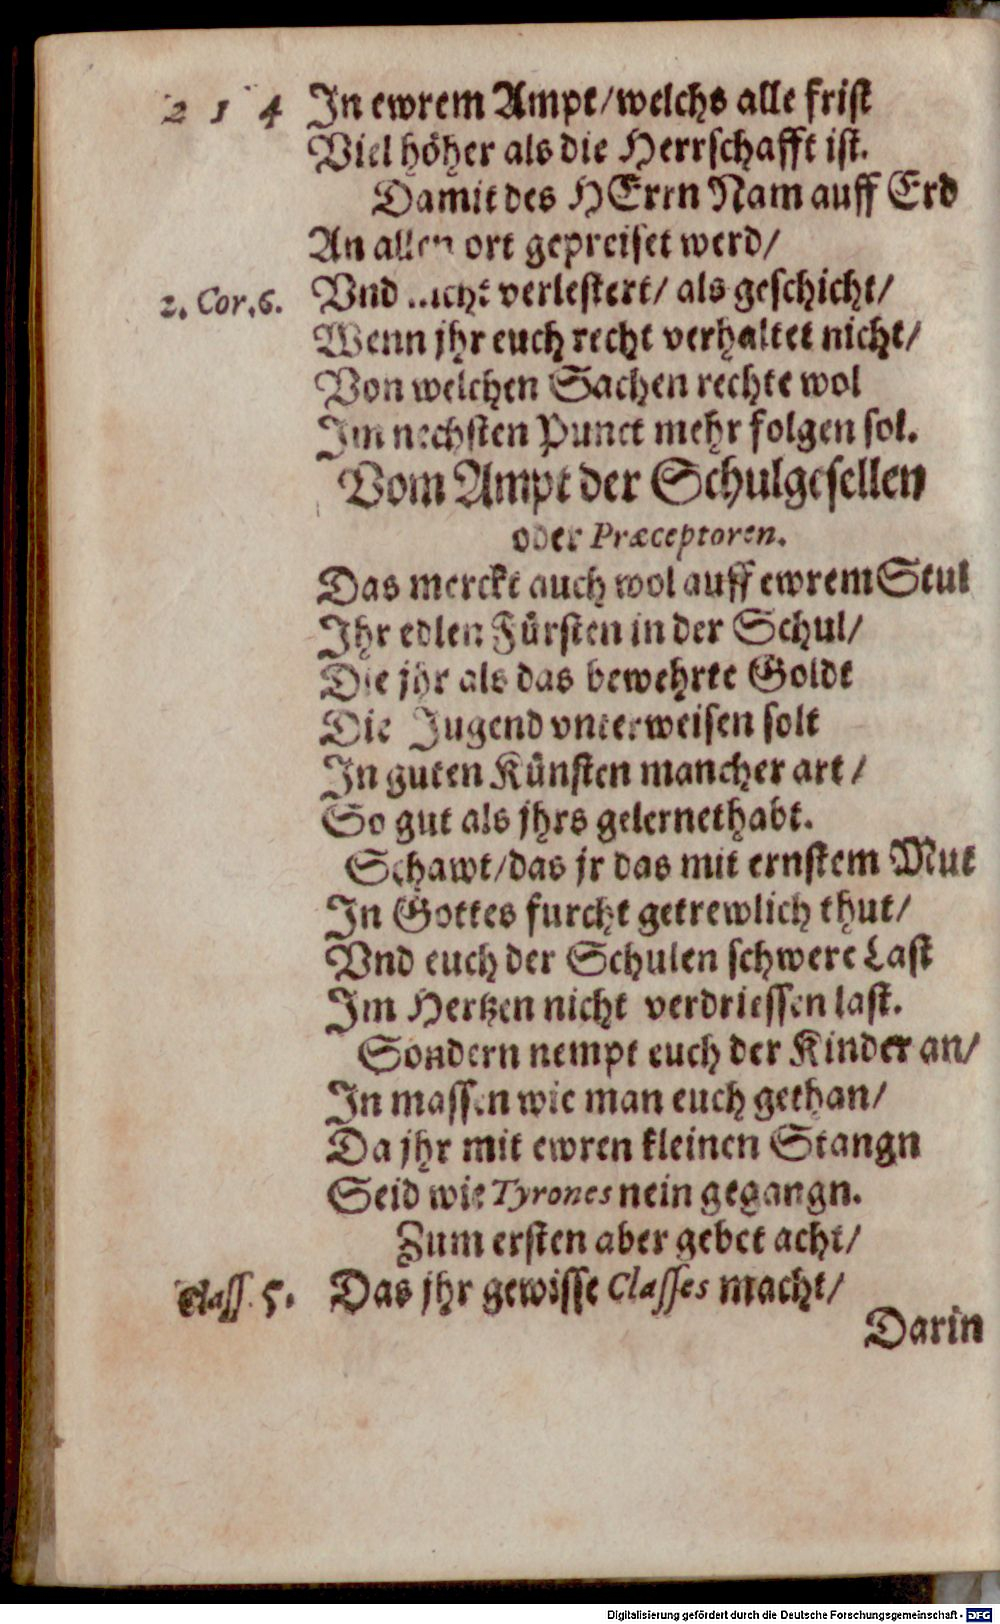 2 1 4 In ewrem Ampt/welchs alle frist
Viel höher als die Herrschafft ist.
Damit des HErrn Nam auff Erd
An allen ort gepreiset werd/
2. Cor. 6. Vnd nicht verlestert/ als geschicht/
Wenn jhr euch recht verhaltet nicht/
Von welchen Sachen rechte wol
Im nechsten Punct mehr folgen sol.
Vom Ampt der Schulgesellen
oder Præceptoren.
Das merckt auch wol auff ewrem Stul
Ihr edlen Fürsten in der Schul/
Die jhr als das bewehrte Goldt
Die Jugend vnterweisen solt
In guten Künsten mancher art/
So gut als jhrs gelernet habt.
Schawt/das jr das mit ernstem Mut
In Gottes furcht getrewlich thut/
Vnd euch der Schulen schwere Last
Im Hertzen nicht verdriessen last.
Sondern nempt euch der Kinder an/
In massen wie man euch gethan/
Da jhr mit ewren kleinen Stangn
Seid wie Tyrones nein gegangn.
Zum ersten aber gebet acht/
Class. 5. Das jhr gewisse Classes macht/
Darin
Digitalisierung gefördert durch die Deutsche Forschungsgemeinschaft - DFG